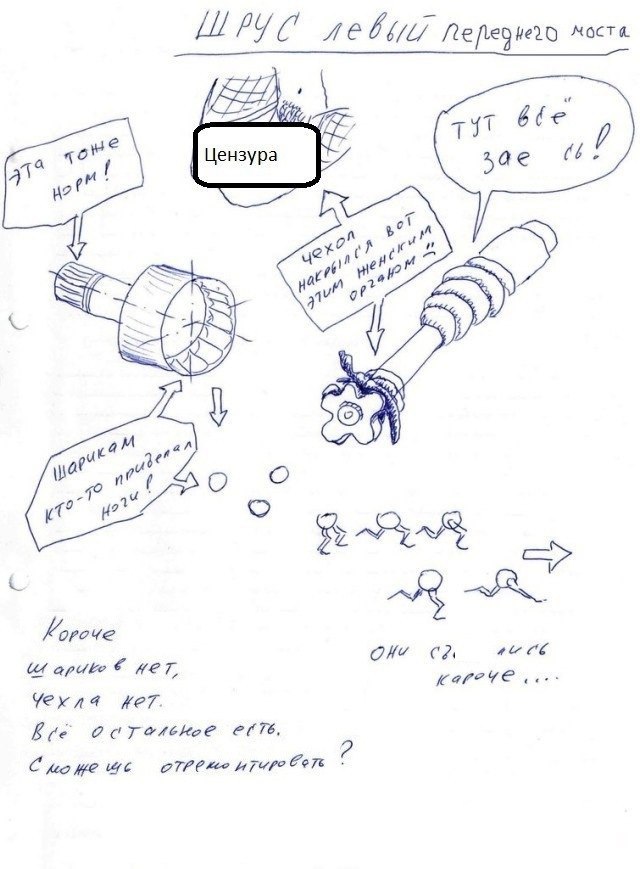 ШРУС левый переднего моста
Цензура
ЭТА тоже
норм!
ТУТ всё
зае сь!
чехол
накрылся вот
этим женским
органом
Шарикам
кто-то приделал
ноги!
Они съ. лись
кароче....
Короче
шариков нет,
чехла нет.
Всё остальное есть.
Сможешь отремонтировать?